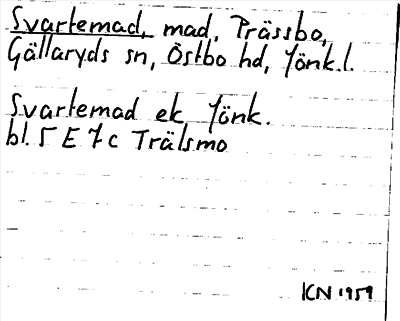 Svartemad, mad, Prässbo,
Gällaryds sn, Östbo hd, Jönk.l.
Svartemad ek Jönk.
bl. 5 E 7 c Trälsmo
KN 1959